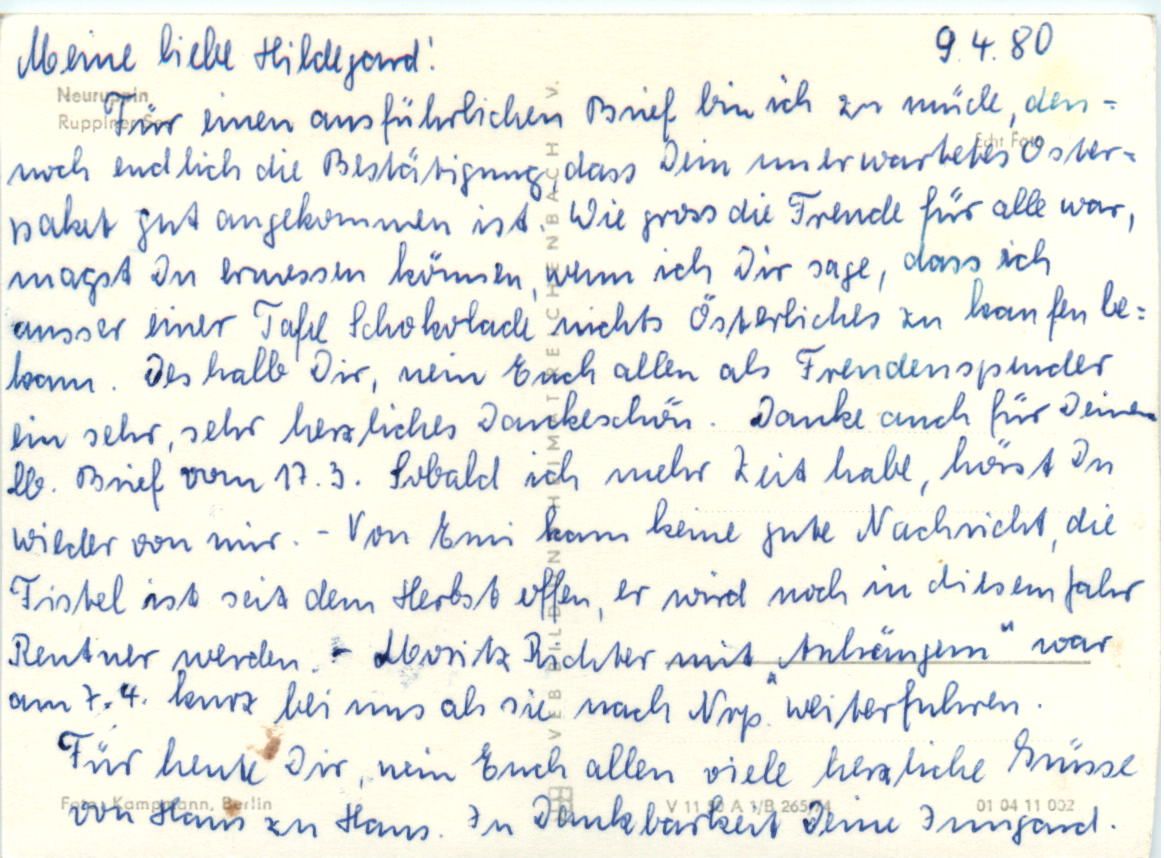 9.4.80
Meine liebe Hildegard!
Neuruppin
Ruppiner See
Echt Foto
Für einen ausführlichen Brief bin ich zu müde, den-
noch endlich die Bestätigung, dass Dein unerwartetes Oster-
paket gut angekommen ist. Wie gross die Freude für alle war,
magst Du ermessen können, wenn ich Dir sage, dass ich
ausser einer Tafel Schokolade nichts Österliches zu kaufen be-
kam. Deshalb Dir, nein Euch allen als Freudenspender
ein sehr, sehr herzliches Dankeschön. Danke auch für Deinen
lb. Brief vom 17.3. Sobald ich mehr Zeit habe, hörst Du
wieder von mir. - Von Emi kam keine gute Nachricht, die
Fistel ist seit dem Herbst offen, er wird noch in diesem Jahr
Rentner werden. - Moritz Richter mit „Anhängern" war
am 7.4. kurz bei uns als sie nach Nrp. weiterfuhren.
Für heute Dir, nein Euch allen viele herzliche Grüsse
von Haus zu Haus. In Dankbarkeit Deine Irmgard.
VEB BILD UND HEIMAT REICHENBACH V.
Foto: Kampmann, Berlin
V 11 50 A 1/B 265/74
01 04 11 002